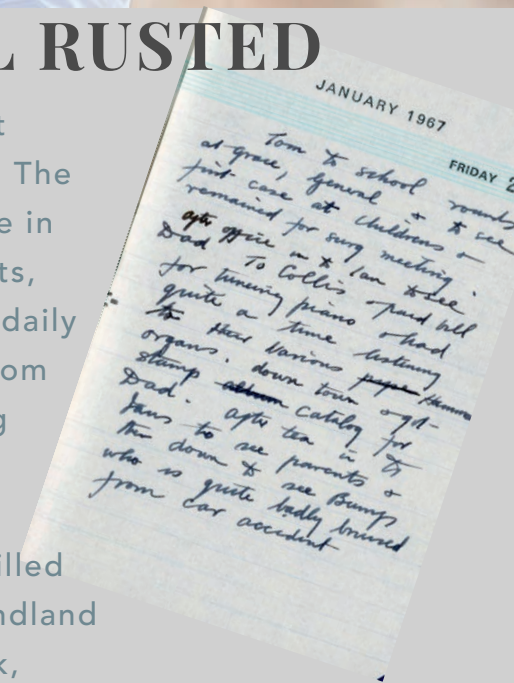 L RUSTED
t
The
e in
ts,
daily
om
g
illed
ndland
k,
JANUARY 1967
FRIDAY 2
Tom to school rounds
at grace, general & to see
first case at childrens &
remained for surg meeting.
after office in to Ian to see
Dad To Collis & paid bill
for tuning piano & had
quite a time listening
to their various Hammond
organs. down town & got
stamp catalog for
Dad. after tea in to
Jans to see parents &
then down to see Bumps
who is quite badly bruised
from car accident